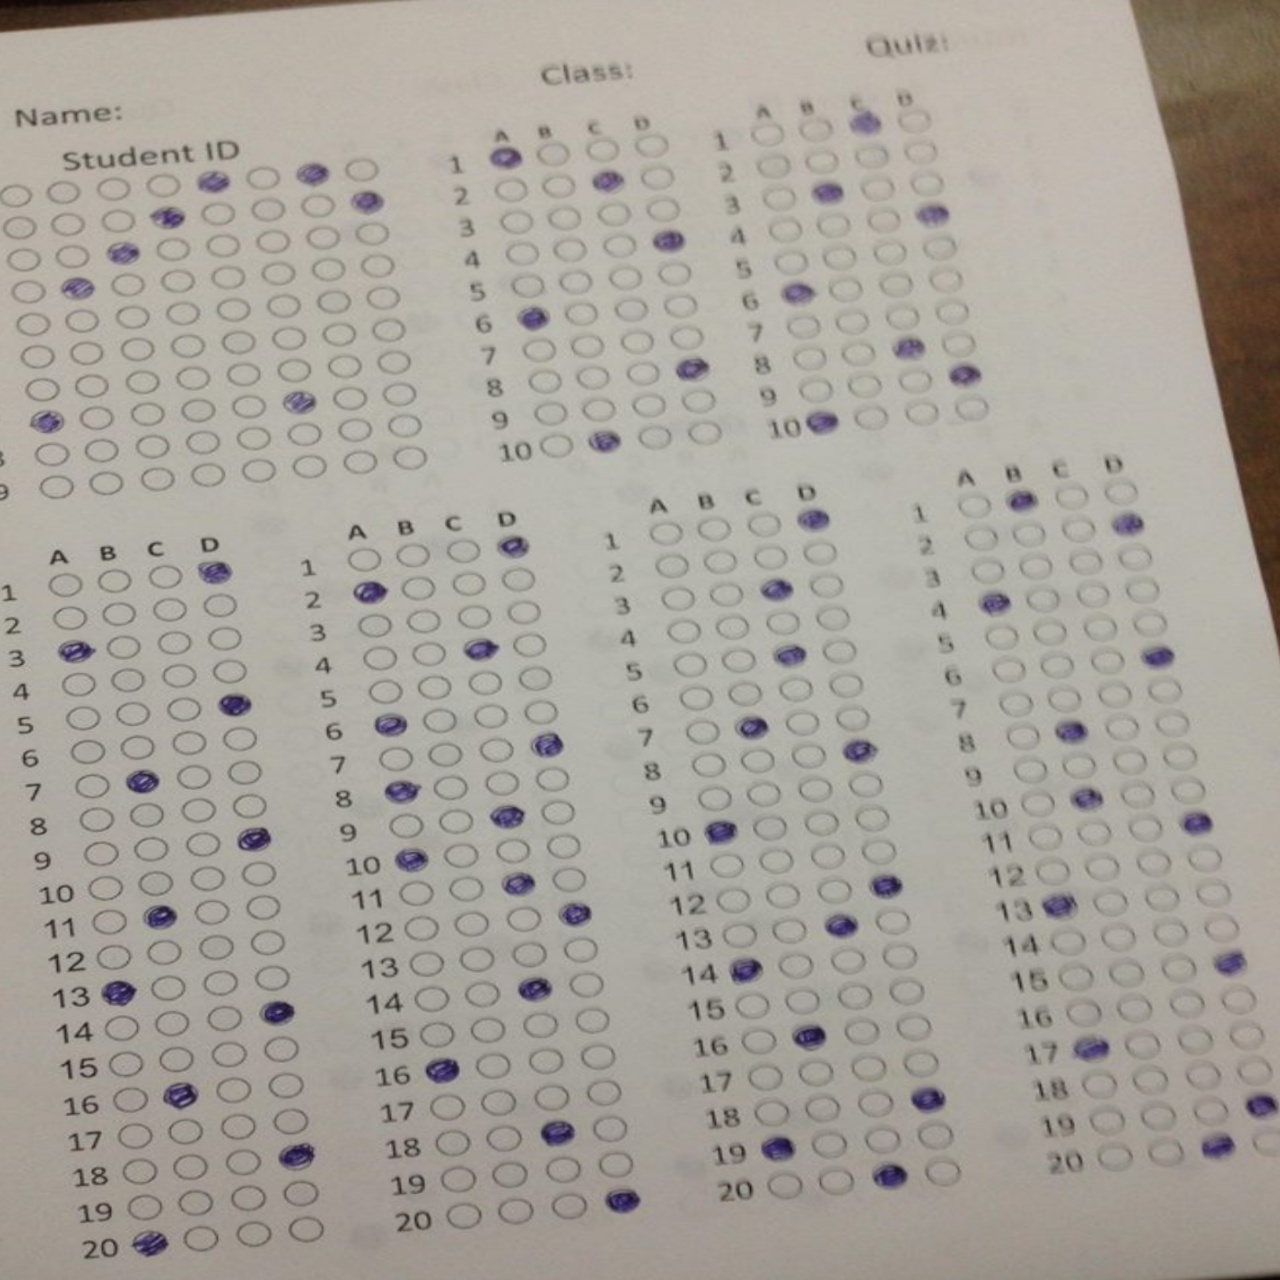 Name:
Class:
Quiz:
Student ID
A B C D
1
2
3
4
5
6
7
8
9
10
A B C D
1
2
3
4
5
6
7
8
9
10
9
A B C D
1
2
3
4
5
6
7
8
9
10
11
12
13
14
15
16
17
18
19
20
A B C D
1
2
3
4
5
6
7
8
9
10
11
12
13
14
15
16
17
18
19
20
A B C D
1
2
3
4
5
6
7
8
9
10
11
12
13
14
15
16
17
18
19
20
A B C D
1
2
3
4
5
6
7
8
9
10
11
12
13
14
15
16
17
18
19
20